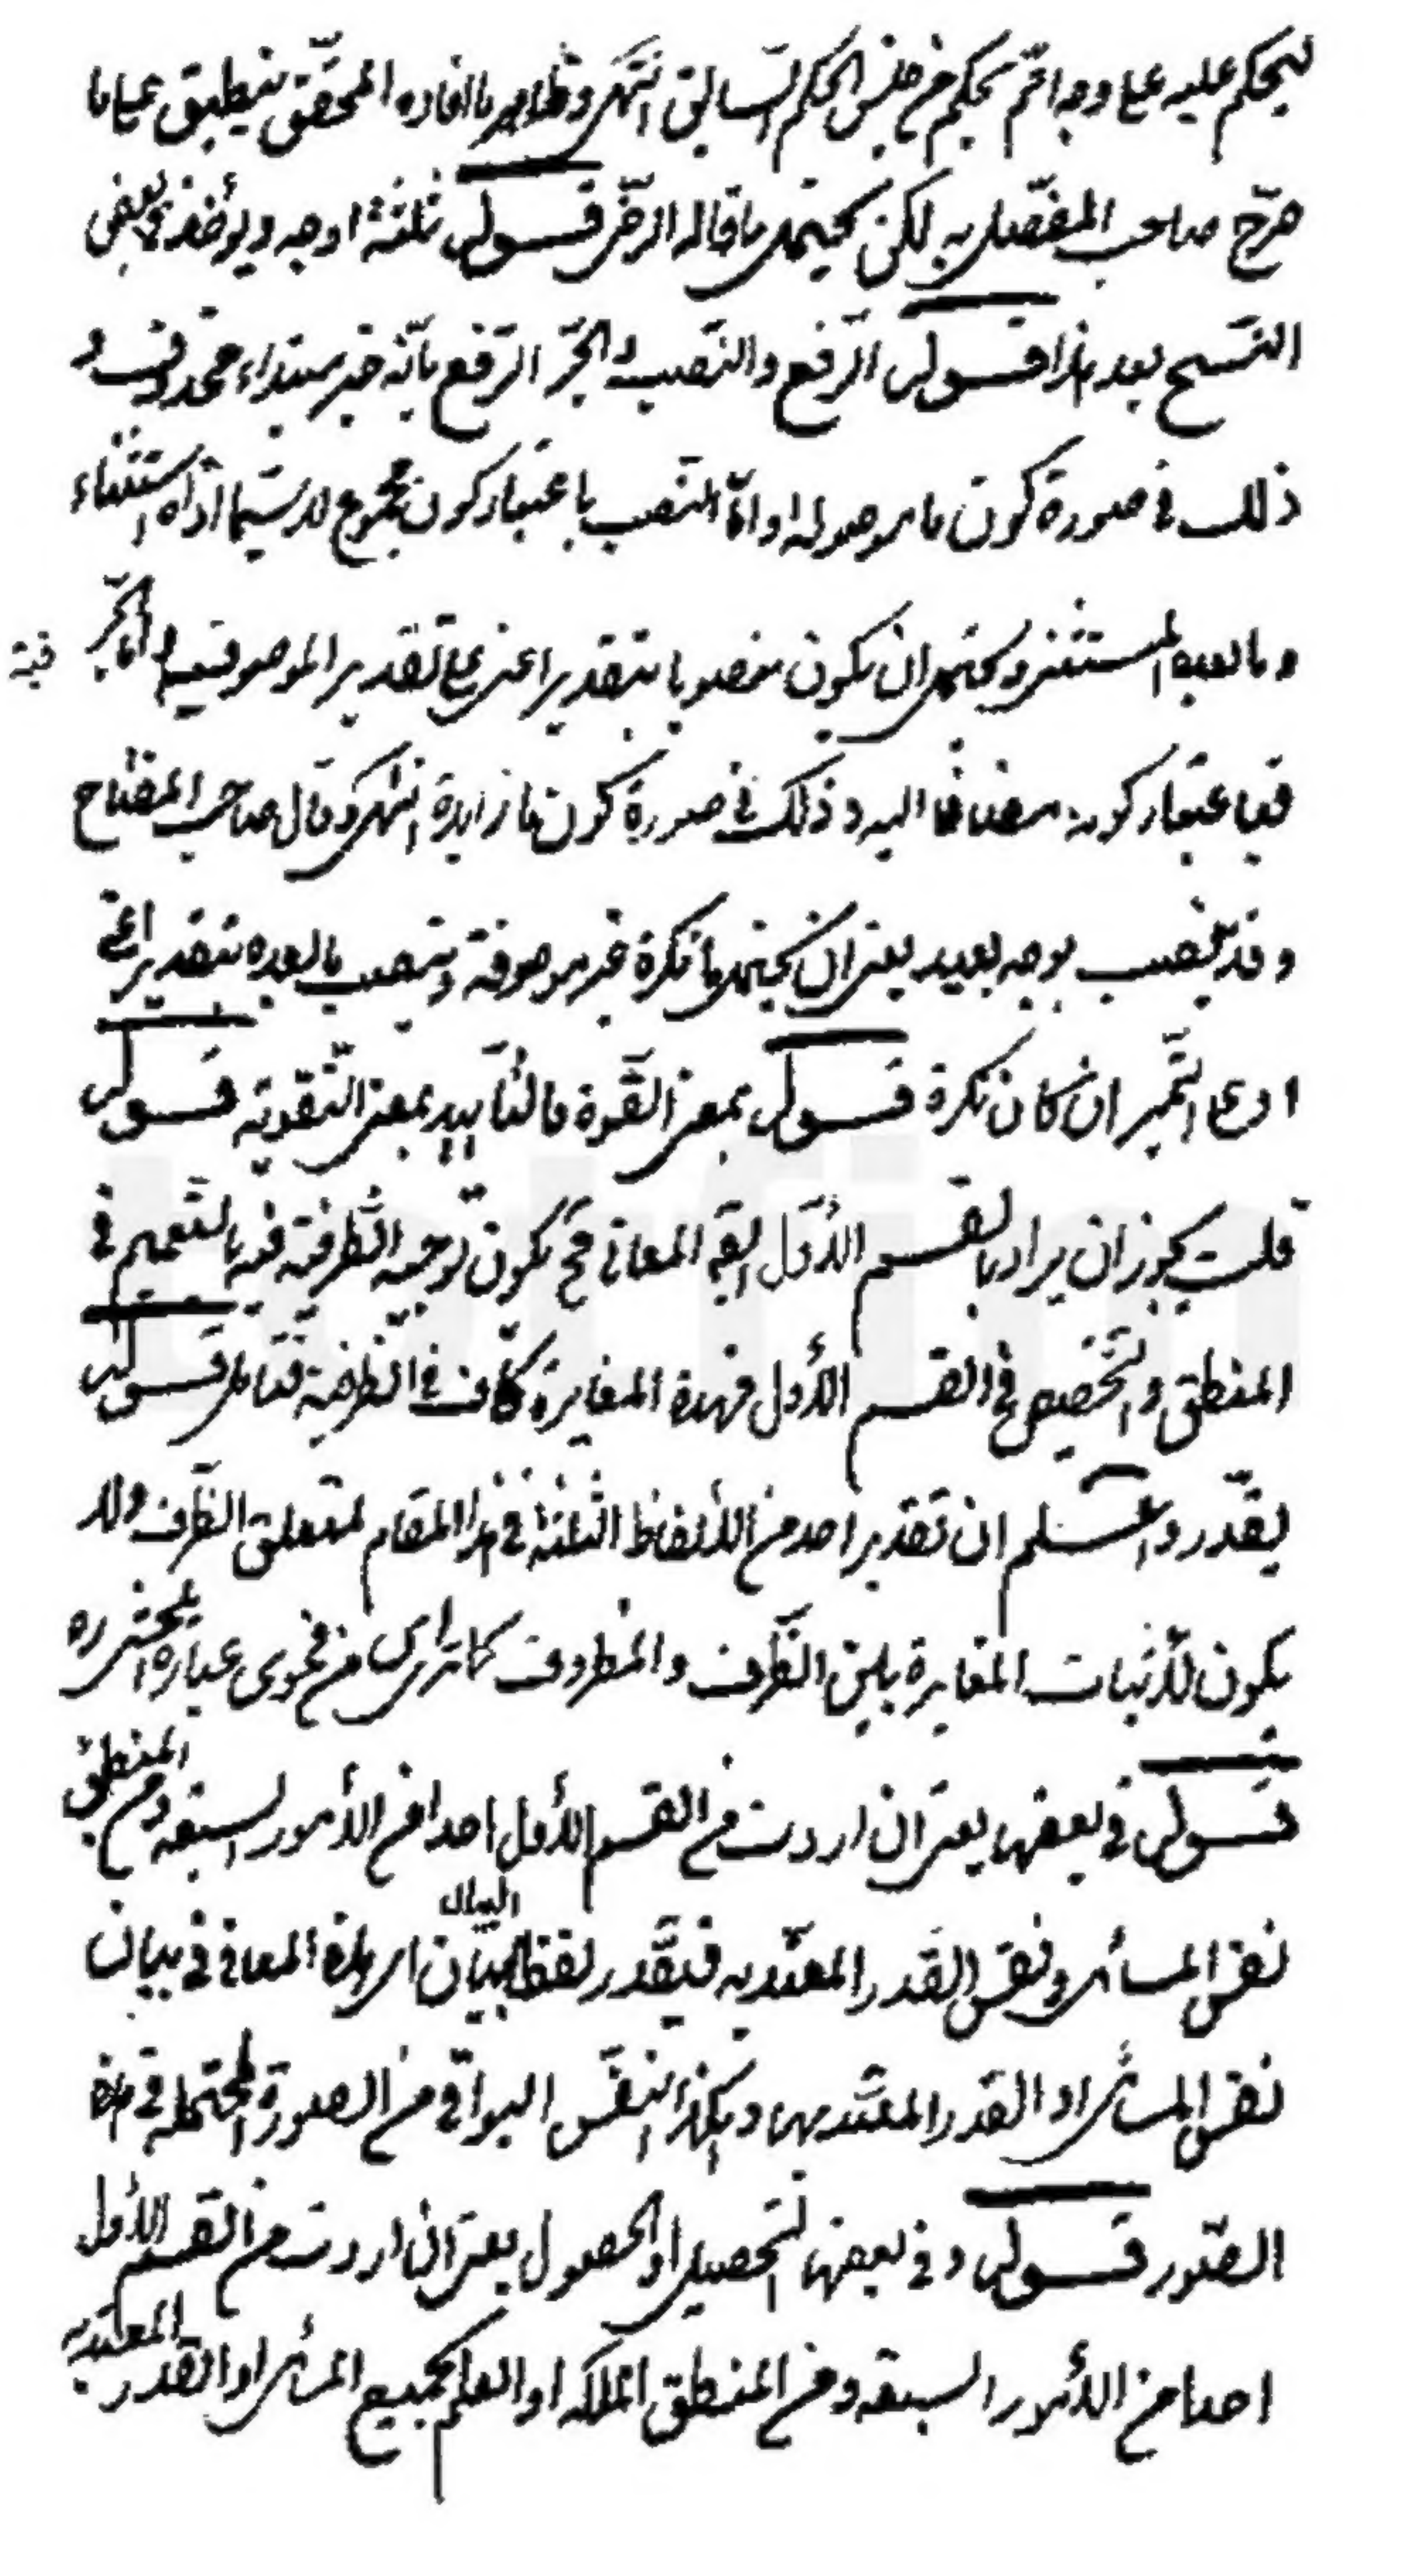 ليحكم عليه على وجه اتم بحكم من جنس الحكم السابق انتهى وظاهر ما افاده المحقق ينطبق على ما
صرّح صاحب المفصل به لكن يحتمل ما قاله الرضى قوله ثلثة اوجه ويؤخذ في بعض
النسخ بعد هذا قوله الرفع والنصب والجرّ الرّفع بانّه خبر مبتداء محذوف و
ذلك في صورة كون ما موصولة واما النصب باعتبار كون مجموع لاسيّما اداة استثناء
وما بعده المستثنى ويحتمل ان يكون منصوبا بتقدير اعنى على تقدير الموصوفية واما الجرّ
فباعتبار كونه مضافا اليه وذلك في صورة كون ما زايدة انتهى وقال صاحب المفتاح
وقد ينصب بوجه بعيد يعنى ان يحتمل ما نكرة غير موصوفة وينصب ما بعده بتقدير اعنى
او على التميز ان كان نكرة قوله بمعنى القوّة فالتأييد بمعنى التقوية قوله
قلت يجوز ان يراد بالقسم الأول ايضا المعانى فح يكون توجيه الظرفية فيه بالتعميم في
المنطق والتخصيص في القسم الأول فهذه المغايرة كاف في الظرفية فتامل قوله
يقدّر واعلم ان تقدير احد من الألفاظ الثلثة في هذا المقام لمتعلق الظرف ولا
يكون لأثبات المغايرة بين الظرف والمظروف كما تراى من فحوى عبارة المحشى ره
قوله في بعضها يعنى ان اردت من القسم الأول احدا من الأمور السبعة ومن المنطق
نفس المسائل ونفس القدر المعتدّ به فيقدر لفظ البيان اى هذه المعانى في بيان
نفس المسائل او القدر المعتد بها وهكذا النفس البواقى من الصورة المحتملة في هذه
الصّور قوله وفي بعضها التحصيل او الحصول يعنى ان اردت من القسم الأول
احدا من الأمور السبعة ومن المنطق الملكة او العلم بجميع المسائل او القدر المعتد به